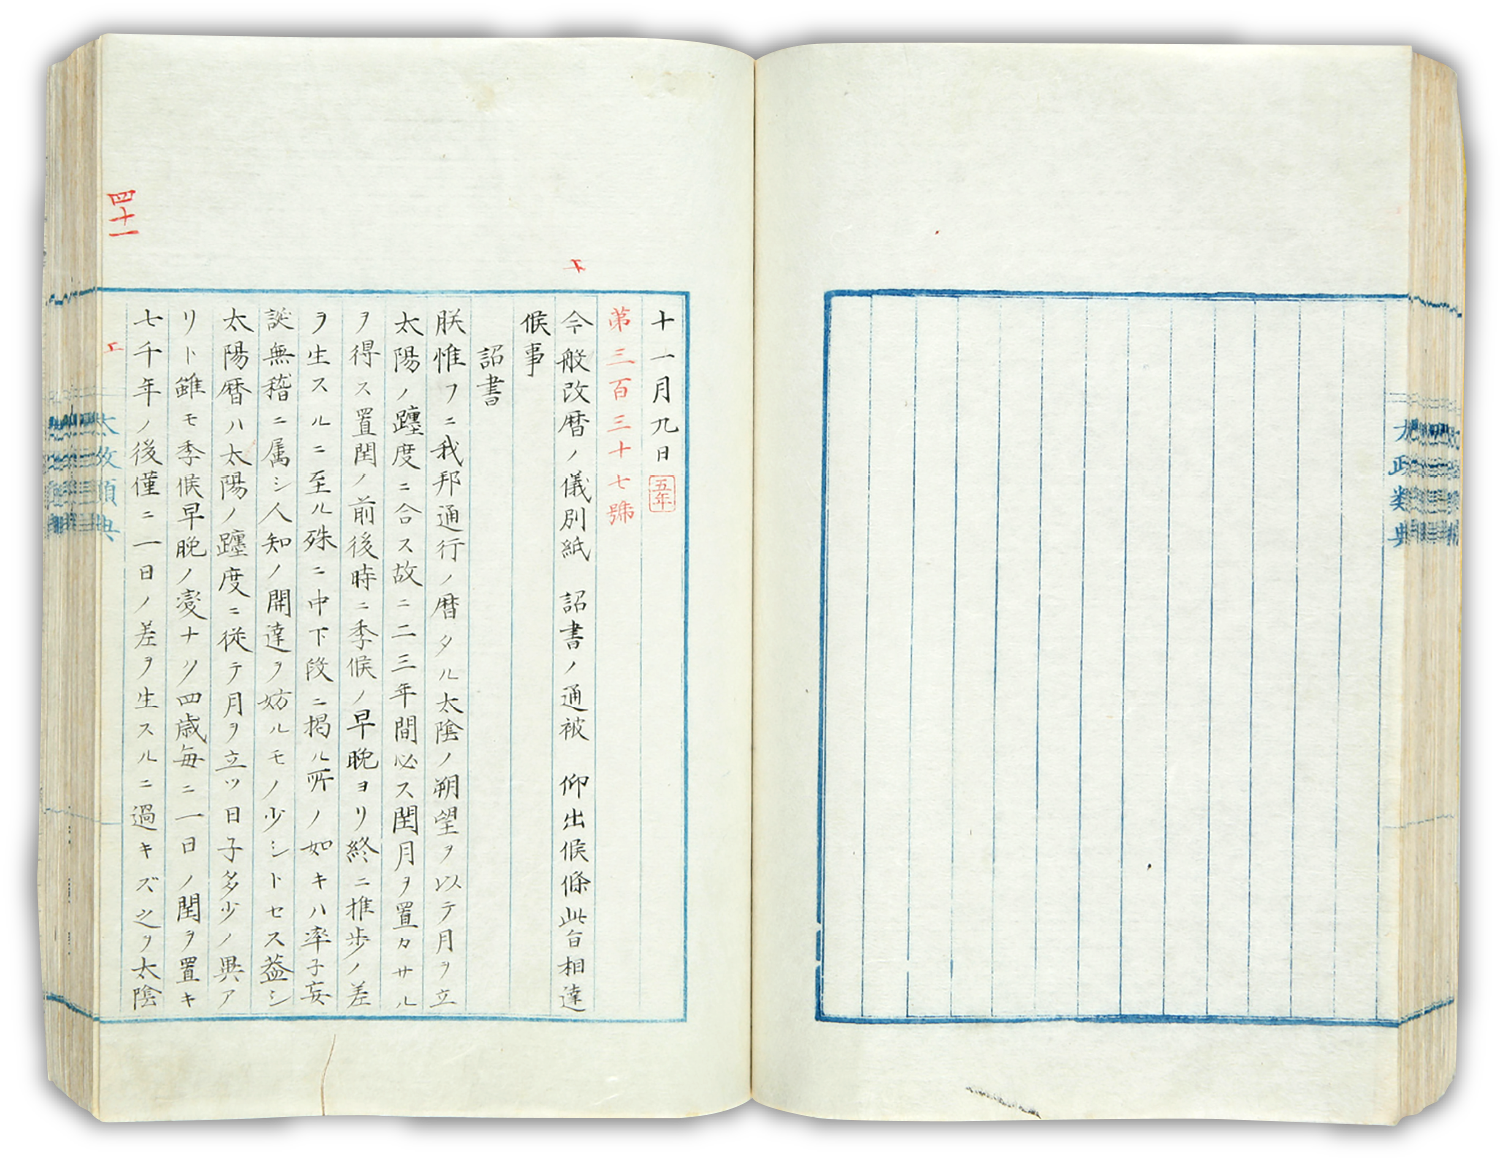 十一月九日 五年
第三百三十七號
今般改暦ノ儀別紙 詔書ノ通被 仰出候條此旨相達
候事
詔書
朕惟フニ我邦通行ノ暦タル太陰ノ朔望ヲ以テ月ヲ立
太陽ノ躔度ニ合ス故ニ二三年間必ス閏月ヲ置カサル
ヲ得ス置閏ノ前後時ニ季候ノ早晩ヨリ終ニ推歩ノ差
ヲ生スルニ至ル殊ニ中下段ニ掲ル所ノ如キハ率子妄
誕無稽ニ属シ人知ノ開達ヲ妨ルモノ少シトセス蓋シ
太陽暦ハ太陽ノ躔度ニ従テ月ヲ立ツ日子多少ノ異ア
リト雖モ季候早晩ノ變ナツ四歳毎ニ一日ノ閏ヲ置キ
七千年ノ後僅ニ一日ノ差ヲ生スルニ過キズ之ヲ太陰
四十一
太政類典
太政類典